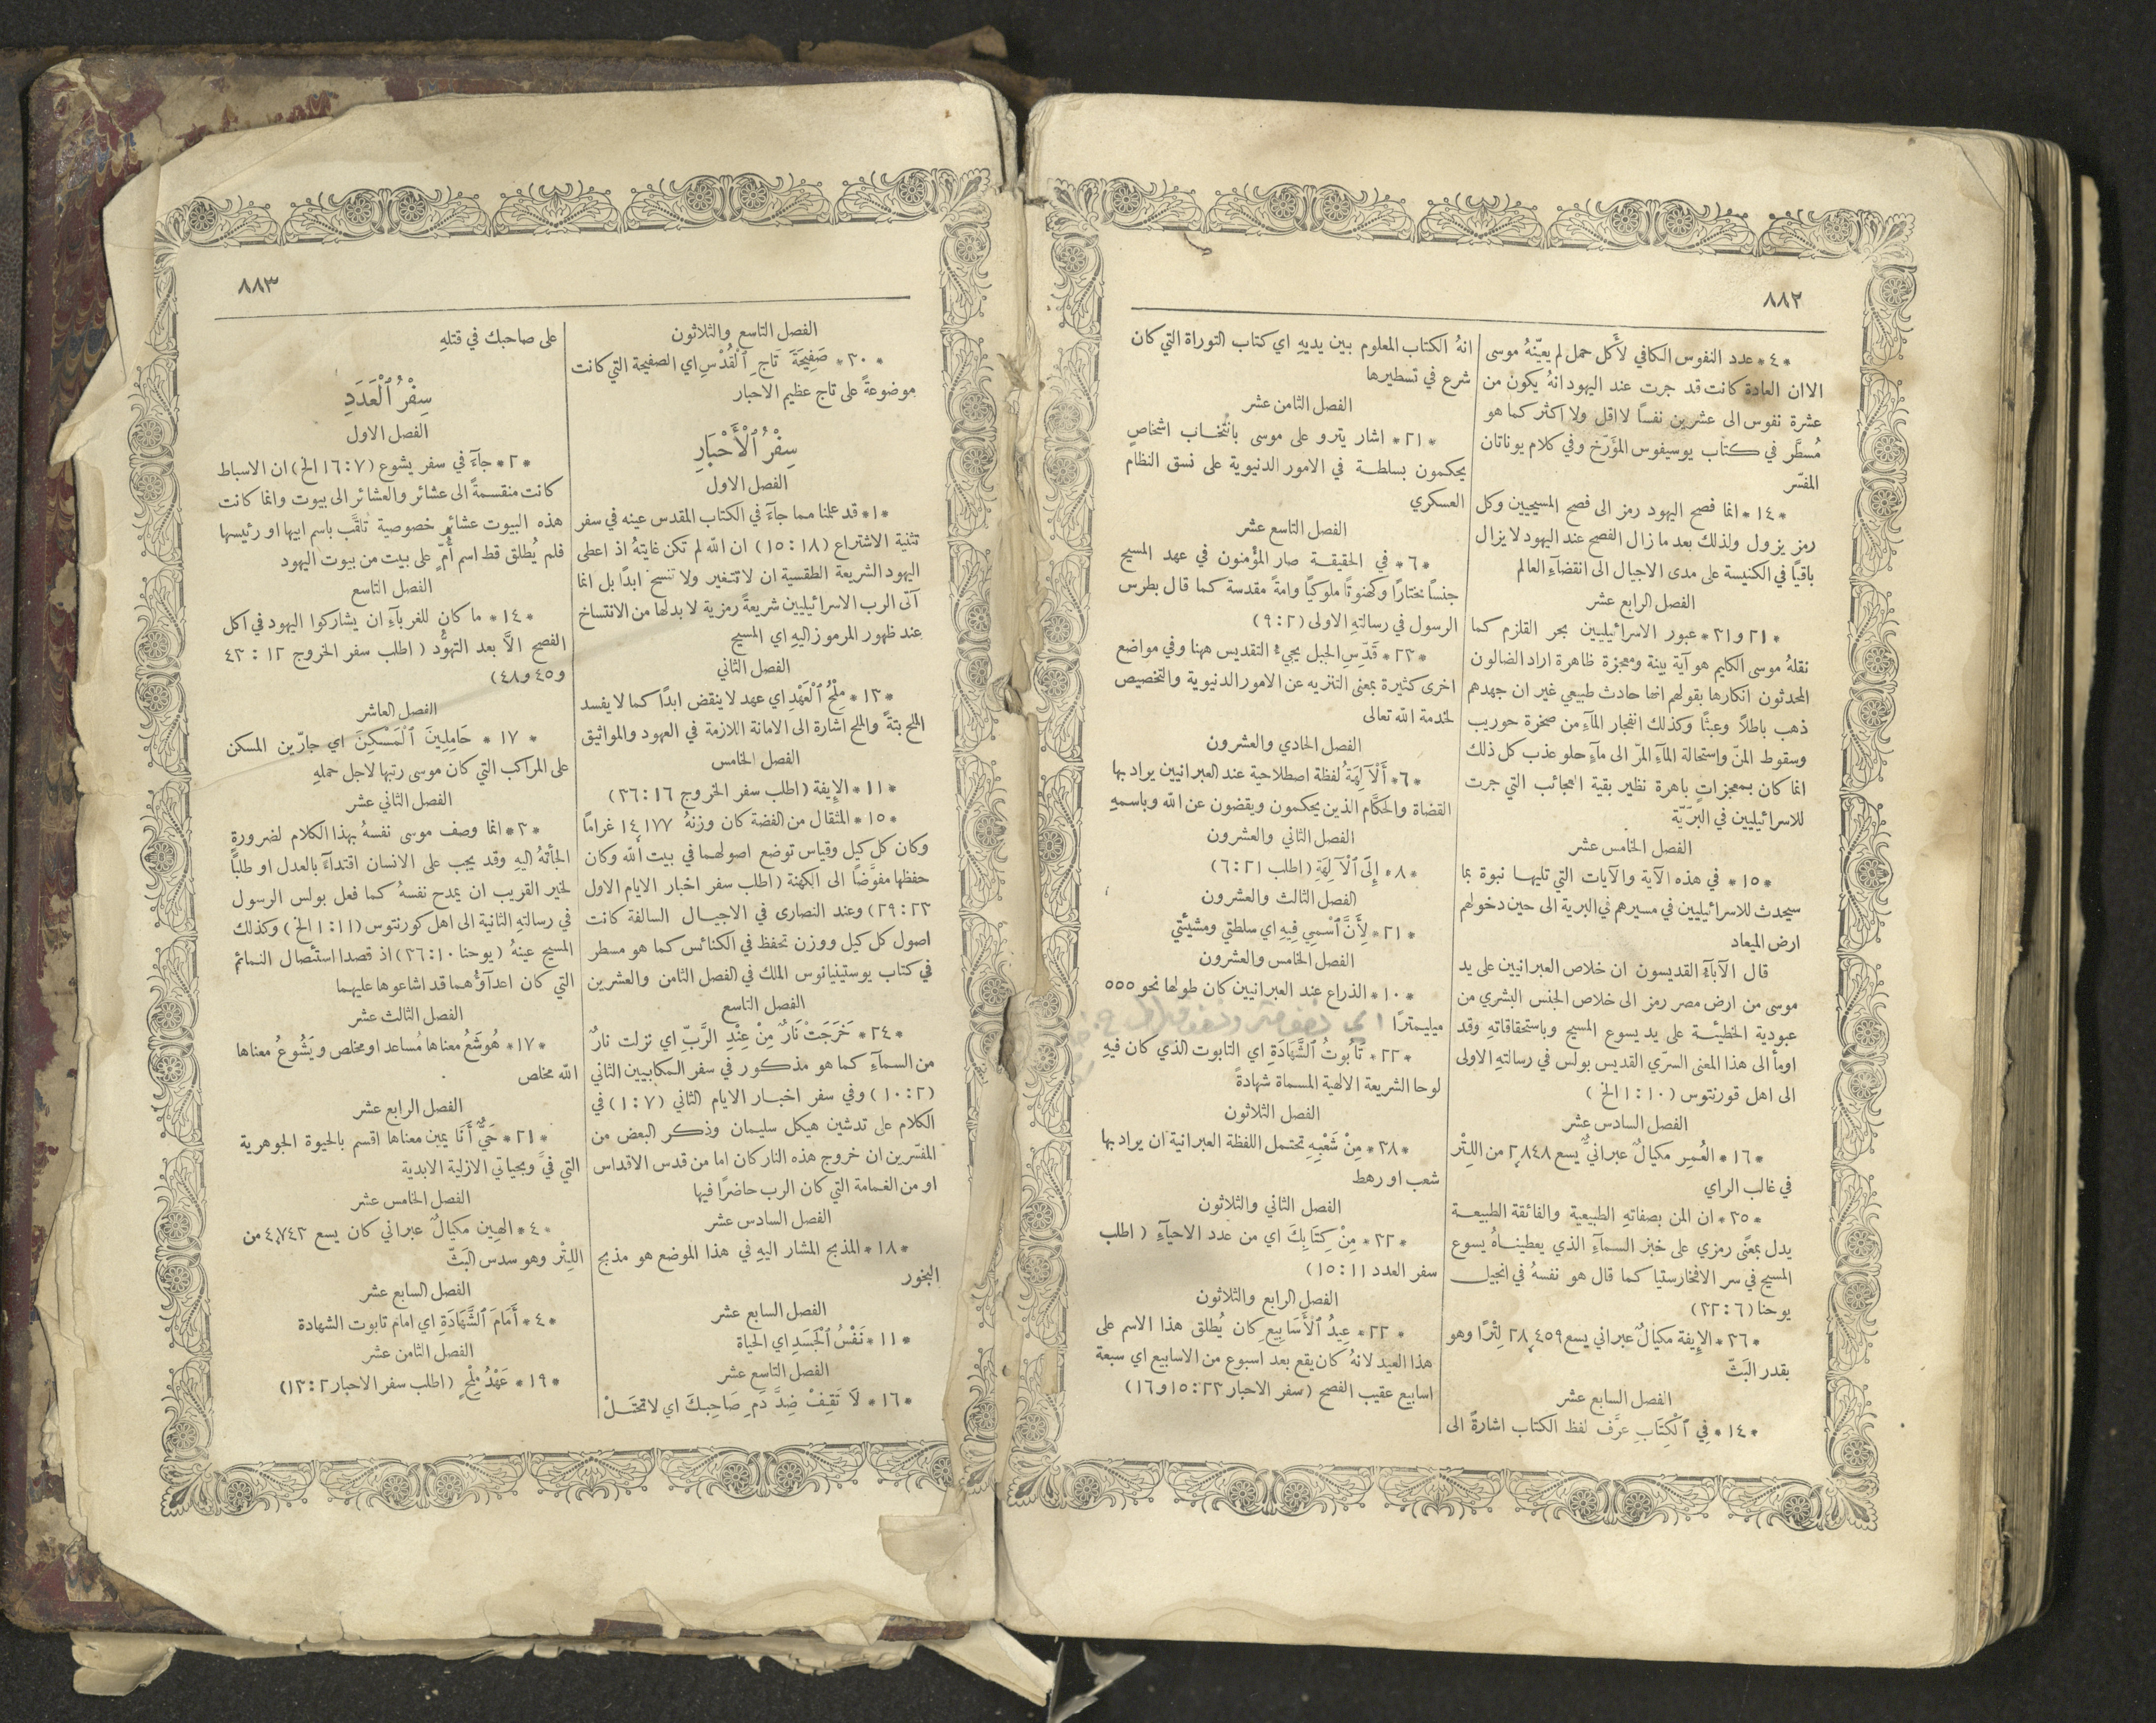 ٨٨٢
*٤* عدد النفوس الكافي لأَكل حمل لم يعيّنهُ موسى
الا ان العادة كانت قد جرت عند اليهود انهُ يكون من
عشرة نفوس الى عشرين نفسًا لا اقل ولا اكثر كما هو
مُسطَّر في كتاب يوسيفوس المؤَرّخ وفي كلام يوناتان
المفسّر
*١٤* انما فصح اليهود رمز الى فصح المسيحيين وكل
رمز يزول ولذلك بعد ما زال الفصح عند اليهود لا يزال
باقيًا في الكنيسة على مدى الاجيال الى انقضآءِ العالم
الفصل الرابع عشر
*٢١ و٣١* عبور الاسرائيليين بحر القلزم كما
نقلهُ موسى الكليم هو آية بينة ومعجزة ظاهرة اراد الضالون
المحدثون انكارها بقولهم انها حادث طبيعي غير ان جهدهم
ذهب باطلاً وعبثًا وكذلك انفجار المآءِ من صخرة حوريب
وسقوط المنّ واستحالة المآءِ المرّ الى مآءِ حلو عذب كل ذلك
انما كان بمعجزاتٍ باهرة نظير بقية العجائب التي جرت
للاسرائيليين في البرّيّة
الفصل الخامس عشر
*١٥* في هذه الآية والآيات التي تليها نبوة بما
سيحدث للاسرائيليين في مسيرهم في البرية الى حين دخولهم
ارض الميعاد
قال الآبآءُ القديسون ان خلاص العبرانيين على يد
موسى من ارض مصر رمز الى خلاص الجنس البشري من
عبودية الخطيئة على يد يسوع المسيح وباستحقاقاتهِ وقد
اومأ الى هذا المعنى السرّي القديس بولس في رسالتهِ الاولى
الى اهل قورنتوس (١٠ : ١ الخ)
الفصل السادس عشر
*١٦* العُمِر مكيالٌ عبرانيٌّ يسع ٢،٨٤٨ من اللِتْر
في غالب الراي
*٣٥* ان المن بصفاتهِ الطبيعية والفائقة الطبيعة
يدل بمعنًى رمزي على خبز السمآءِ الذي يعطيناهُ يسوع
المسيح في سر الافخارستيا كما قال هو نفسهُ في انجيل
يوحنا (٦ : ٣٢)
*٣٦* الإيفة مكيالٌ عبراني يسع ٢٨،٤٥٩ لِتْرًا وهو
بقدر البَثّ
الفصل السابع عشر
*١٤* فِي ٱلْكِتَابِ عرَّف لفظ الكتاب اشارةً الى
انهُ الكتاب المعلوم بين يديهِ اي كتاب التوراة التي كان
شرع في تسطيرها
الفصل الثامن عشر
*٢١* اشار يترو على موسى بانتخاب اشخاصٍ
يحكمون بسلطة في الامور الدنيوية على نسق النظام
العسكري
الفصل التاسع عشر
*٦* في الحقيقة صار المؤْمنون في عهد المسيح
جنسًا مختارًا وكهنوتًا ملوكيًا وامةً مقدسة كما قال بطرس
الرسول في رسالتهِ الاولى (٢ : ٩)
*٢٣* قَدِّسِ الجبل يجيءُ التقديس ههنا وفي مواضع
اخرى كثيرة بمعنى التنزيه عن الامور الدنيوية والتخصيص
لخدمة الله تعالى
الفصل الحادي والعشرون
*٦* أَلْآلِهَةُ لفظة اصطلاحية عند العبرانيين يراد بها
القضاة والحكَّام الذين يحكمون ويقضون عن الله وباسمهِ
الفصل الثاني والعشرون
*٨* إِلَى ٱلْآلِهَةِ (اطلب ٢١ : ٦)
الفصل الثالث والعشرون
*٢١* لِأَنَّ ٱسْمِي فِيهِ اي سلطتي ومشيئَتي
الفصل الخامس والعشرون
*١٠* الذراع عند العبرانيين كان طولها نحو ٥٥٥
ميليمترًا
*٢٢* تَابُوتُ ٱلشَّهَادَةِ اي التابوت الذي كان فيهِ
لوحا الشريعة الالهية المسماة شهادةً
الفصل الثلاثون
*٣٨* مِنْ شَعْبِهِ تحتمل اللفظة العبرانية ان يراد بها
شعب او رهط
الفصل الثاني والثلاثون
*٣٢* مِنْ كِتَابِكَ اي من عدد الاحيآءِ (اطلب
سفر العدد ١١ : ١٥)
الفصل الرابع والثلاثون
*٢٢* عِيدُ ٱلْأَسَابِيعِ كان يُطلق هذا الاسم على
هذا العيد لانهُ كان يقع بعد اسبوع من الاسابيع اي سبعة
اسابيع عقيب الفصح (سفر الاحبار ٢٣ : ١٥ و١٦)
٨٨٣
الفصل التاسع والثلاثون
*٣٠* صَفِيحَةَ تَاجِ ٱلْقُدْسِ اي الصفيحة التي كانت
موضوعةً على تاج عظيم الاحبار
سِفْرُ ٱلْأَحْبَارِ
الفصل الاول
*١* قد علمنا مما جآءَ في الكتاب المقدس عينه في سفر
تثنية الاشتراع (١٨ : ١٥) ان الله لم تكن غايتهُ اذ اعطى
اليهود الشريعة الطقسية ان لا تتغير ولا تنسخ ابدًا بل انما
آتى الرب الاسرائيليين شريعةً رمزية لا بد لها من الانتساخ
عند ظهور المرموز اليهِ اي المسيح
الفصل الثاني
*١٣* مِلْحُ ٱلْعَهْدِ اي عهد لا ينقض ابدًا كما لا يفسد
الملح بتةً والملح اشارة الى الامانة اللازمة في العهود والمواثيق
الفصل الخامس
*١١* الإِيفة (اطلب سفر الخروج ١٦ : ٣٦)
*١٥* المثقال من الفضة كان وزنهُ ١٤،١٧٧ غرامًا
وكان كل كيل وقياس توضع اصولهما في بيت الله وكان
حفظها مفوّضًا الى الكهنة (اطلب سفر اخبار الايام الاول
٢٣ : ٢٩) وعند النصارى في الاجيال السالفة كانت
اصول كل كيل ووزن تحفظ في الكنائس كما هو مسطر
في كتاب يوستينيانوس الملك في الفصل الثامن والعشرين
الفصل التاسع
*٢٤* خَرَجَتْ نَارٌ مِنْ عِنْدِ الرَّبِّ اي نزلت نارٌ
من السمآءِ كما هو مذكور في سفر المكابيين الثاني
(٢ : ١٠) وفي سفر اخبار الايام الثاني (٧ : ١) في
الكلام على تدشين هيكل سليمان وذكر البعض من
المفسّرين ان خروج هذه النار كان اما من قدس الاقداس
او من الغمامة التي كان الرب حاضرًا فيها
الفصل السادس عشر
*١٨* المذبح المشار اليهِ في هذا الموضع هو مذبح
البخور
الفصل السابع عشر
*١١* نَفْسُ ٱلْجَسَدِ اي الحياة
الفصل التاسع عشر
*١٦* لَا تَقِفْ ضِدَّ دَمِ صَاحِبِكَ اي لا تحتَلْ
على صاحبك في قتلهِ
سِفْرُ ٱلْعَدَدِ
الفصل الاول
*٢* جآءَ في سفر يشوع (٧ : ١٦ الخ) ان الاسباط
كانت منقسمةً الى عشائر والعشائر الى بيوت وانما كانت
هذه البيوت عشائر خصوصية تُلقَّب باسم ابيها او رئيسها
فلم يُطلق قط اسم أُمٍّ على بيت من بيوت اليهود
الفصل التاسع
*١٤* ما كان للغربآءِ ان يشاركوا اليهود في اكل
الفصح الاَّ بعد التهوُّد (اطلب سفر الخروج ١٢ : ٤٣
و٤٥ و٤٨)
الفصل العاشر
*١٧* حَامِلِينَ ٱلْمَسْكِنَ اي جارّين المسكن
على المراكب التي كان موسى رتبها لاجل حملهِ
الفصل الثاني عشر
*٣* انما وصف موسى نفسهُ بهذا الكلام لضرورةٍ
الجأَتهُ اليهِ وقد يجب على الانسان اقتدآءً بالعدل او طلبًا
لخير القريب ان يمدح نفسهُ كما فعل بولس الرسول
في رسالتهِ الثانية الى اهل كورنتوس (١١ : ١ الخ) وكذلك
المسيح عينهُ (يوحنا ١٠ : ٣٦) اذ قصدا استئْصال النمائم
التي كان اعدآؤُهما قد اشاعوها عليهما
الفصل الثالث عشر
*١٧* هُوشَعُ معناها مُساعد او مخلص ويَشُوعُ معناها
الله مخلص
الفصل الرابع عشر
*٢١* حَيٌّ أَنَا يمين معناها اقسم بالحيوة الجوهرية
التي فيَّ وبحياتي الازلية الابدية
الفصل الخامس عشر
*٤* الهِين مكيالٌ عبراني كان يسع ٤،٧٤٣ من
اللِتْر وهو سدس البَثّ
الفصل السابع عشر
*٤* أَمَامَ ٱلشَّهَادَةِ اي امام تابوت الشهادة
الفصل الثامن عشر
*١٩* عَهْدُ مِلْحٍ (اطلب سفر الاحبار ٢ : ١٣)